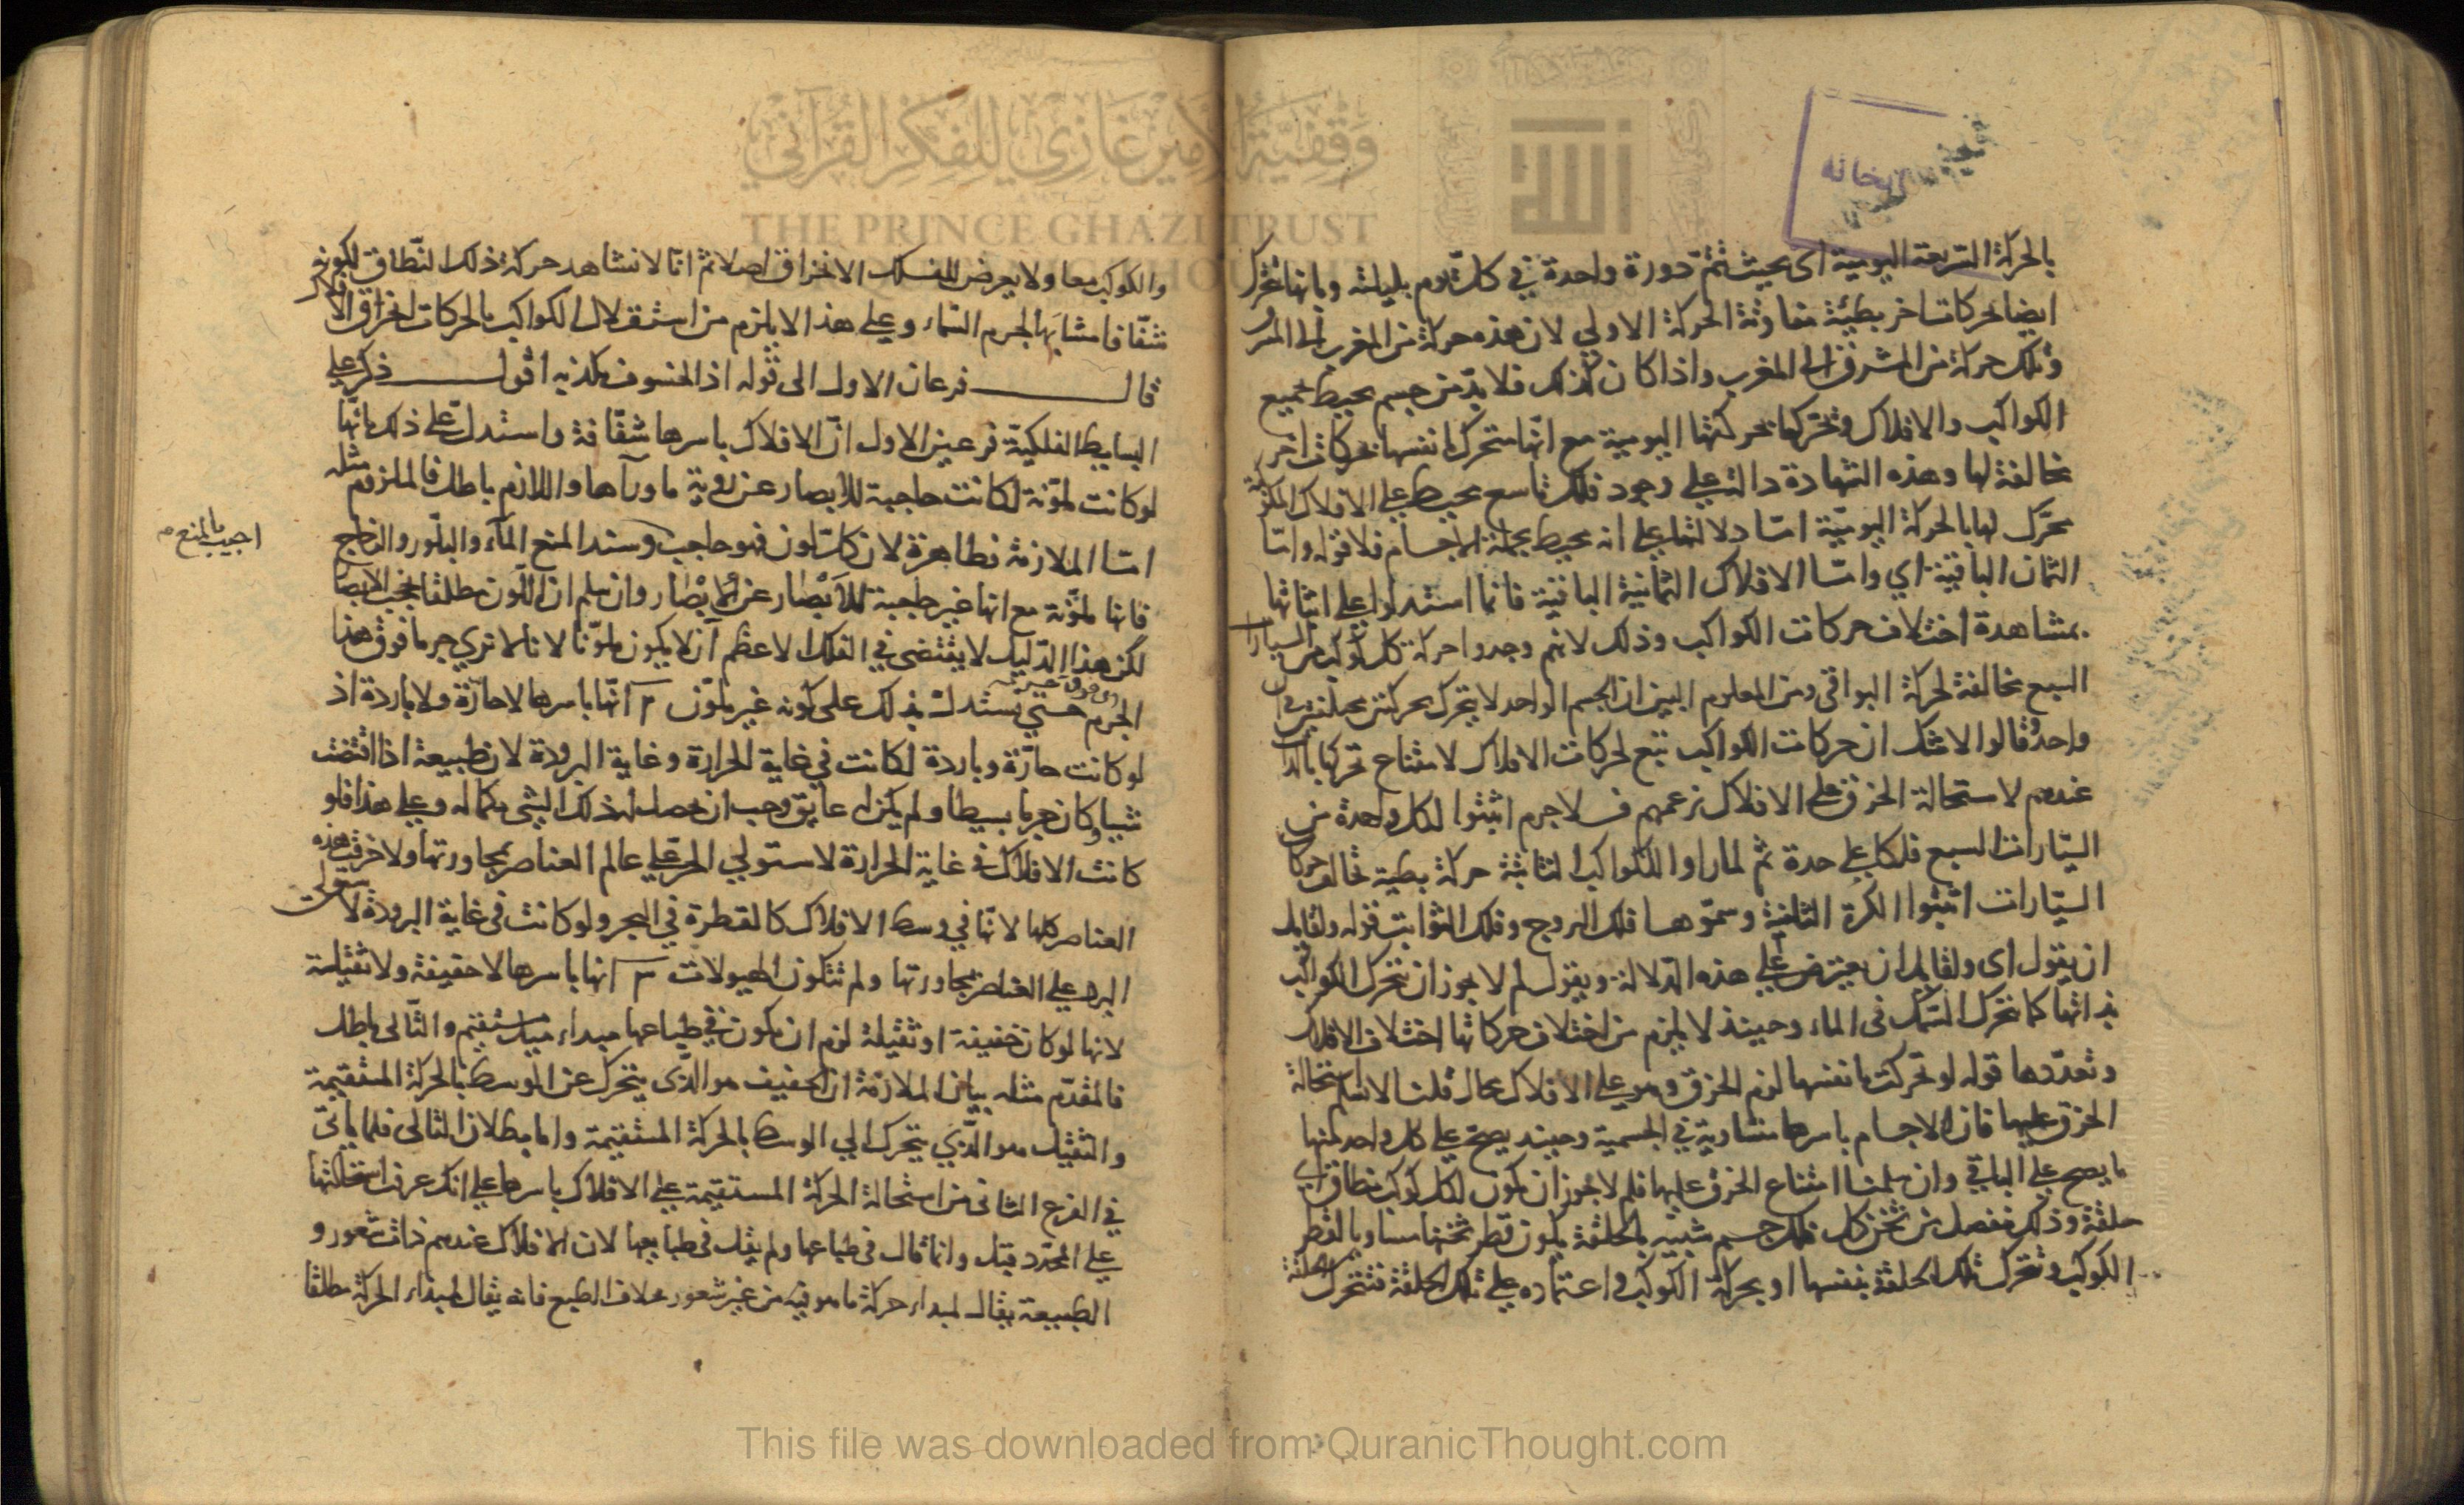 بالحركة السريعة اليومية اى بحيث تتم دورة واحدة في كل يوم بليلته وبانها تتحرك
ايضا بحركات اخر بطيئة متفاوتة الحركة الاولي لان هذه حركة من المغرب الى المشر
وتلك حركة من المشرق الى المغرب واذا كان كذلك فلا بد من جسم محيط بجميع
الكواكب والافلاك وتحركها بحركتها اليومية مع انها متحرك بانفسها بحركات اخر
مخالفة لها وهذه الشهادة دالة على وجود فلك تاسع محيط على الافلاك المكوكبة
محرك لها بالحركة اليومية اما دلالتها على انه محيط بجملة الاجسام فلا قوله واما
الثمان الباقية اي واما الافلاك الثمانية الباقية فانما استدلوا على اثباتها
بمشاهدة اختلاف حركات الكواكب وذلك لانهم وجدوا حركة كل كوكب من السيارات
السبع مخالفة لحركة البواقي ومن المعلوم البين ان الجسم الواحد لا يتحرك بحركتين مختلفتين في
واحد وقالوا لا شك ان حركات الكواكب تتبع لحركات الافلاك لامتناع تحركها بالذات
عندهم لاستحالة الخرق على الافلاك بزعمهم فلا جرم اثبتوا لكل واحدة من
السيارات السبع فلكا على حدة ثم لما راوا للكواكب الثابتة حركة بطية تخالف حركات
السيارات اثبتوا الكرة الثامنة وسموها فلك البروج وفلك الثوابت قوله ولقايل
ان يقول اى ولقايل ان يعترض على هذه الدلالة ويقول لم لا يجوز ان تتحرك الكواكب
بذاتها كما تتحرك السمك في الماء وحينئذ لا يلزم من اختلاف حركاتها اختلاف الافلاك
وتعددها قوله لو تحركت بانفسها لزم الخرق وهو على الافلاك محال قلنا لا نسلم استحالة
الخرق عليها فان الاجسام باسرها متساوية في الجسمية وحينئذ يصح على كل واحد منها
ما يصح على الباقي وان سلمنا امتناع الخرق عليها فلم لا يجوز ان يكون لكل كوكب نطاق اى
حلقة وذلك منفصل من ثخن كل فلك جسم شبيه بالحلقة يكون قطر ثخنها مساويا لقطر
الكوكب وتتحرك تلك الحلقة بنفسها او بحركة الكوكب واعتماده على تلك الحلقة فتتحرك الحلقة
والكوكب معا ولا يعرض للفلك الانخراق اصلا ثم انا لا نشاهد حركة ذلك النطاق لكونه
شفافا مشابها لجرم السماء وعلى هذا لا يلزم من استقلال الكواكب بالحركات انخراق الافلاك
قال فرعان الاول الى قوله اذ الخسوف يكذبه اقول ذكر على
البسايط الفلكية فرعين الاول ان الافلاك باسرها شفافة واستدل على ذلك بانها
لو كانت ملونة لكانت حاجبة للابصار عن رؤية ما ورآها واللازم باطل فالملزوم مثله
اما الملازمة فظاهرة لان كل لون فهو حاجب وسند المنع المآء والبلور والزجاج
اجيب بالمنع م
فانها ملونة مع انها غير حاجبة للابصار عن الابصار وان سلم ان اللون مطلقا يحجب الابصار
لكن هذا الدليل لا يقتضى في الفلك الاعظم ان لا يكون ملونا لانا لا نري جرما فوق هذا
الجرم حتي يستدل بذلك على كونه غير ملون م انها باسرها لا حارة ولا باردة اذ
لو كانت حارة وباردة لكانت في غاية الحرارة وغاية البرودة لان طبيعة اذا اقتضت
شيا وكان جرما بسيطا ولم يكن له عايق وجب ان يحصل له ذلك الشي بكماله وعلى هذا فلو
كانت الافلاك في غاية الحرارة لاستولي الحر على عالم العناصر بمجاورتها ولاحرقت هذه
العناصر كلها لانها في وسط الافلاك كالقطرة في البحر ولو كانت في غاية البرودة لاستولى
البرد على العناصر بمجاورتها ولم تتكون الهيولات م انها باسرها لا خفيفة ولا ثقيلة
لانها لو كان خفيفة او ثقيلة لزم ان يكون في طباعها مبداء ميل مستقيم والتالى باطل
فالمقدم مثله بيان الملازمة ان الخفيف هو الذي يتحرك عن الوسط بالحركة المستقيمة
والثقيل هو الذي يتحرك الي الوسط بالحركة المستقيمة واما بطلان التالى فلما ياتى
في الفرع الثانى من استحالة الحركة المستقيمة على الافلاك باسرها على انك عرفت استحالتها
على المحدد قبل وانما قال في طباعها ولم يقل في طبايعها لان الافلاك عندهم ذات شعور و
الطبيعة يقال لمبداء حركة ما هو فيه من غير شعور بخلاف الطبع فانه يقال لمبداء الحركة مطلقا
وقفية الأمير غازي للفكر القرآني
THE PRINCE GHAZI TRUST
This file was downloaded from QuranicThought.com